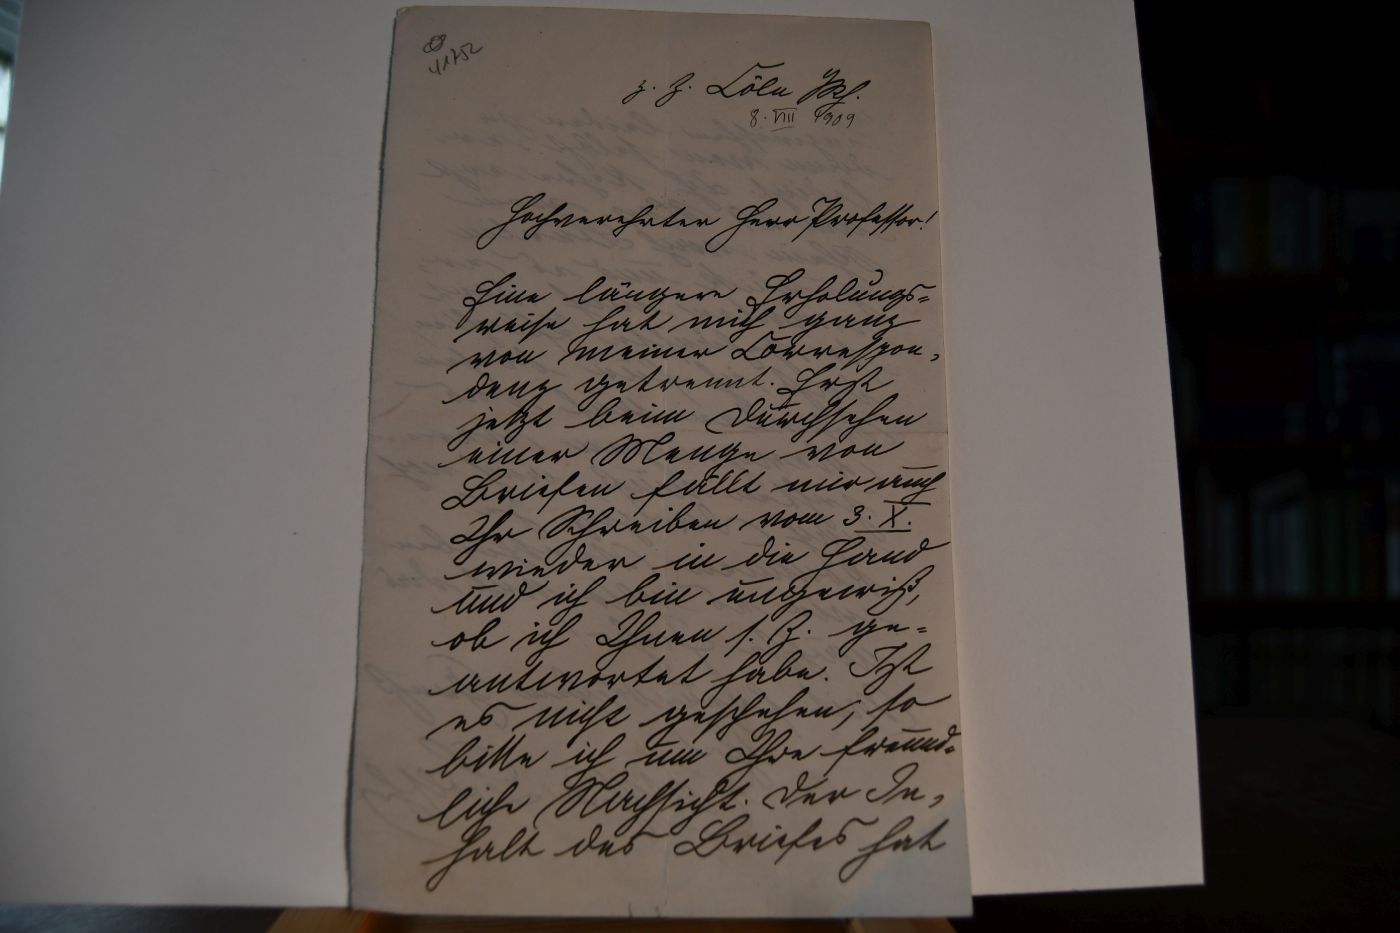 41752
z. Z. Cöln Rh.
8. VIII 1909
Hochverehrter Herr Professor!
Eine längere Erholungs=
reise hat mich ganz
von meiner Correspon,
denz getrennt. Erst
jetzt beim Durchsehen
einer Menge von
Briefen fällt mir auch
Ihr Schreiben vom 3. X.
wieder in die Hand
und ich bin ungewiß,
ob ich Ihnen s. Z. ge=
antwortet habe. Ist
es nicht geschehen, so
bitte ich um Ihre freund=
liche Nachsicht. Der In,
halt des Briefes hat